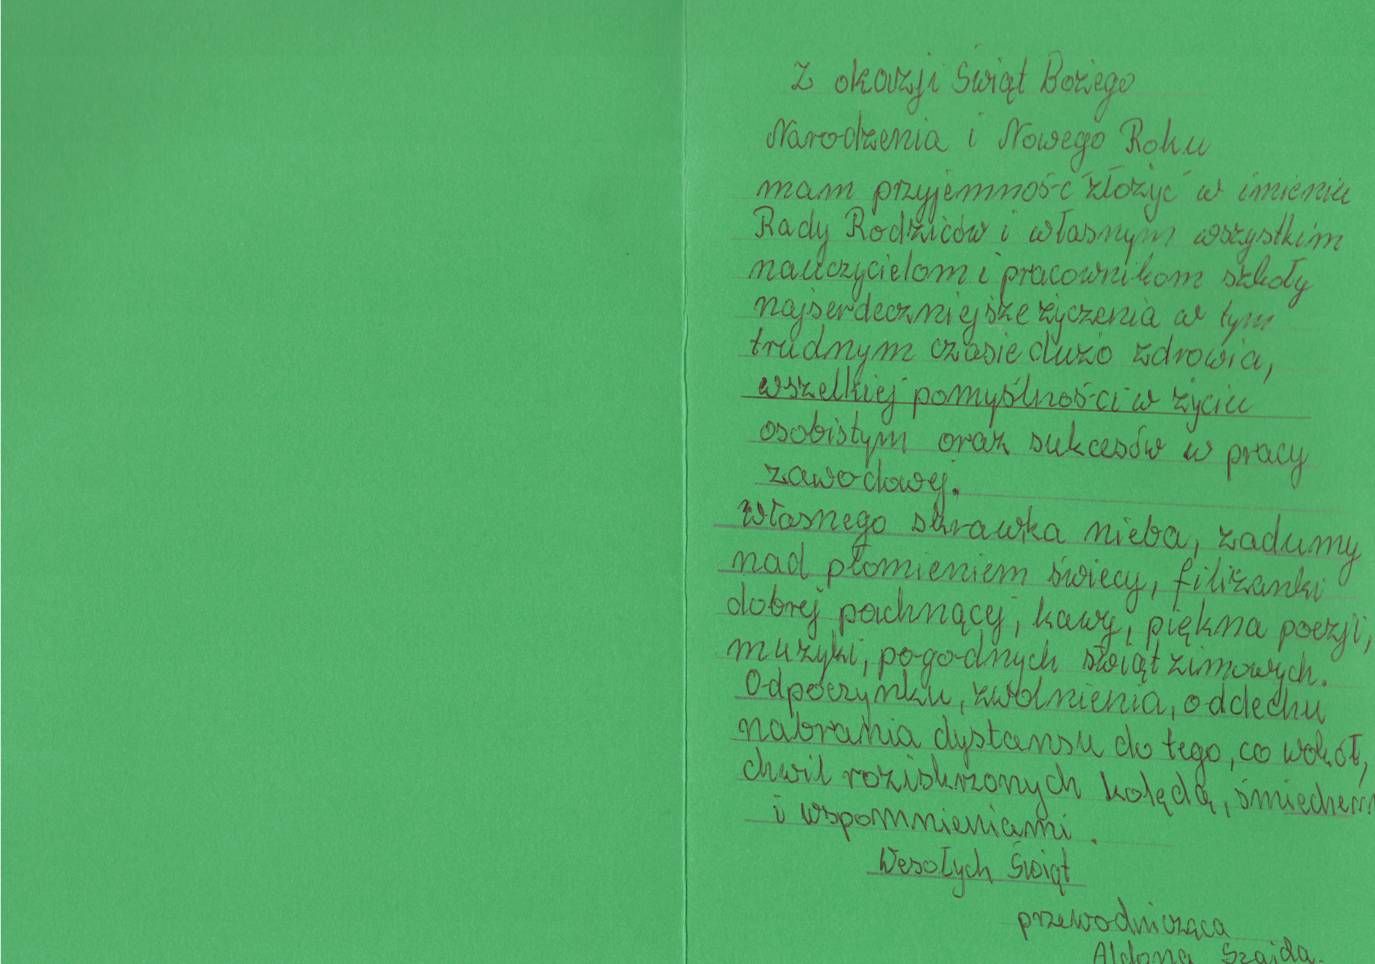 Z okazji Świąt Bożego
Narodzenia i Nowego Roku
mam przyjemność złożyć w imieniu
Rady Rodziców i własnym wszystkim
nauczycielom i pracownikom szkoły
najserdeczniejsze życzenia w tym
trudnym czasie dużo zdrowia,
wszelkiej pomyślności w życiu
osobistym oraz sukcesów w pracy
zawodowej.
Własnego skrawka nieba, zadumy
nad płomieniem świecy, filiżanki
dobrej pachnącej, kawy, piękna poezji,
muzyki, pogodnych świąt zimowych.
Odpoczynku, zwolnienia, oddechu
nabrania dystansu do tego, co wokół,
chwil roziskrzonych kolędą, śmiechem
i wspomnieniami.
Wesołych Świąt
przewodnicząca
Aldona Szajda.